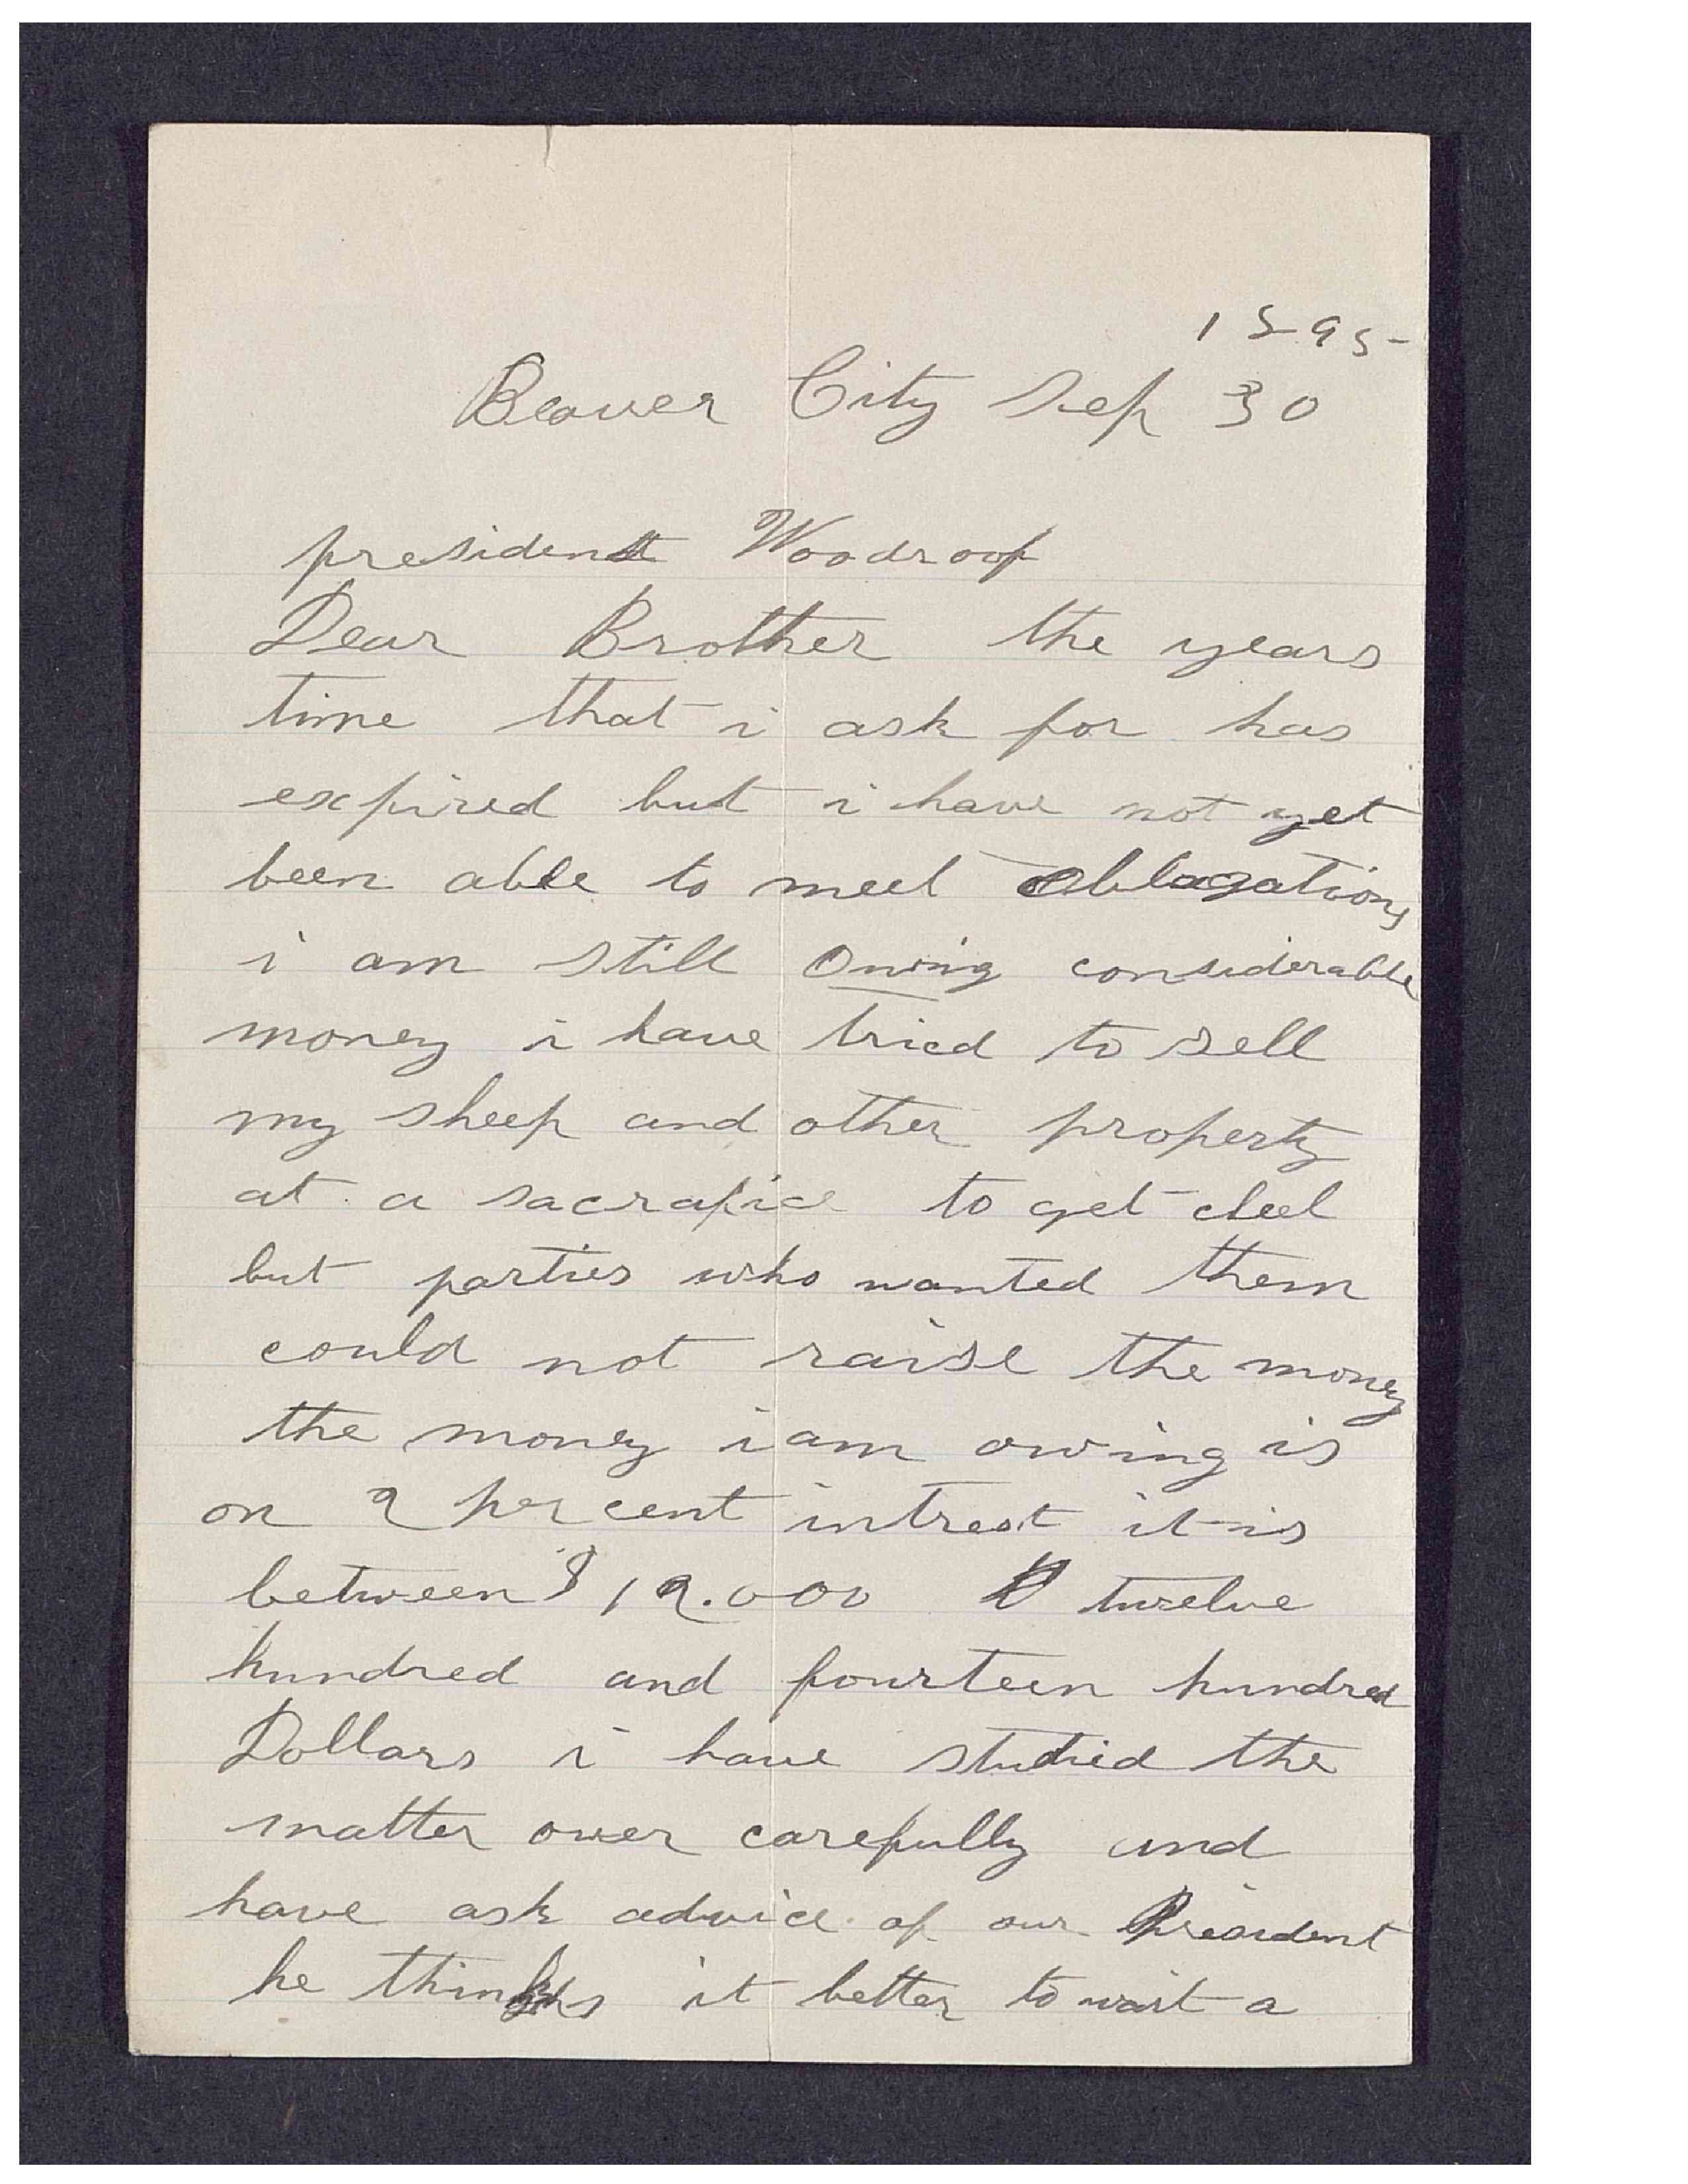 1895
Beaver City Sep 30
president Woodroof
Dear Brother the years
time that i ask for has
expired but i have not yet
been able to meet oblagations
i am still owing considerable
money i have tried to sell
my sheep and other property
at a sacrafice to get
but parties who wanted them
could not raise the money
the money i am owing is
on 2 per cent intrest it is
between $12.000 twelve
hundred and fourteen hundred
Dollars i have studied the
matter over carefully and
have ask advice of our President
he thinks it better to wait a